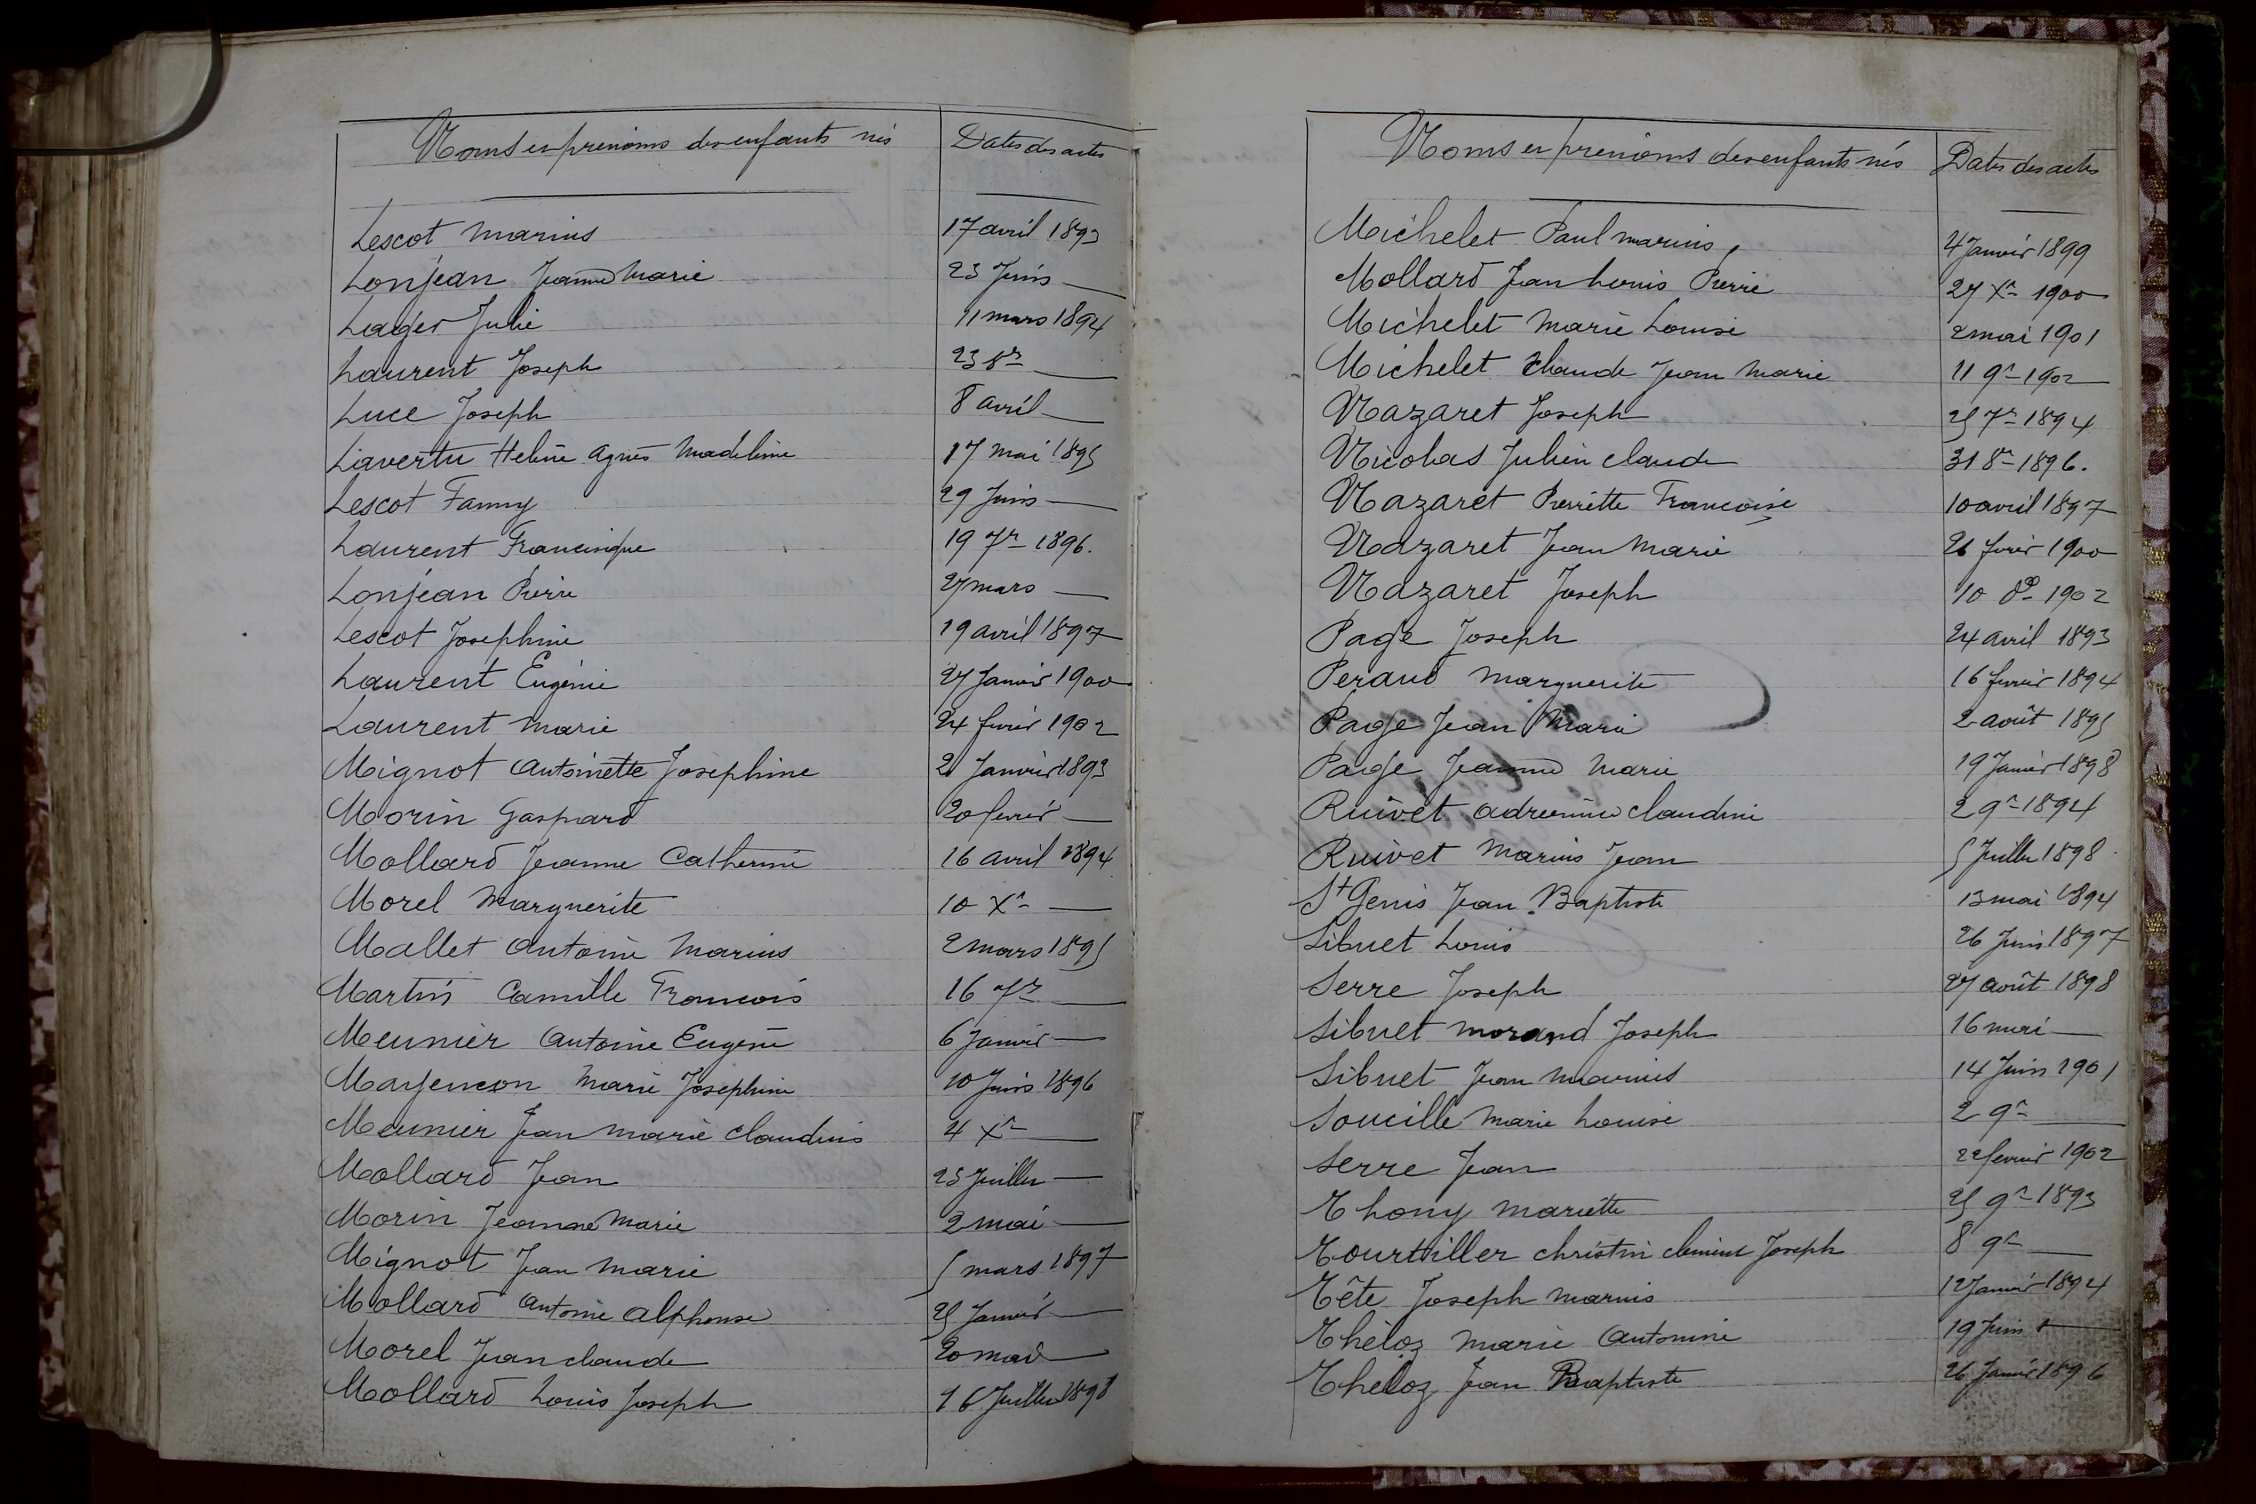 Noms et prénoms des enfants nés Dates des actes
Lescot Marius 17 avril 1893
Lonjean Jeanne Marie 23 Juin —
Lager Julie 11 mars 1894
Laurent Joseph 23 8re —
Luce Joseph 8 avril —
Liavertu Helène Agnès Madeleine 17 mai 1895
Lescot Fanny 29 Juin —
Laurent Francisque 19 7re 1896.
Lonjean Pierre 27 mars —
Lescot Josephine 19 avril 1897
Laurent Eugénie 27 Janvier 1900
Laurent Marie 24 fevrier 1902
Mignot Antoinette Josephine 21 Janvier 1893
Morin Gaspard 20 fevrier —
Mollard Jeanne Catherine 16 avril 1894
Morel Marguerite 10 Xre —
Mallet Antoine Marius 2 mars 1895
Martin Camille François 16 7re —
Meunier Antoine Eugène 6 Janvier —
Mayencon Marie Josephine 10 Juin 1896
Meunier Jean Marie Claudius 4 Xre —
Mollard Jean 23 Juillet —
Morin Jeanne Marie 2 mai —
Mignot Jean Marie 5 mars 1897
Mollard Antoine Alphonse 25 Janvier —
Morel Jean Claude 20 mai —
Mollard Louis Joseph 16 Juillet 1898
Noms et prénoms des enfants nés Dates des actes
Michelet Paul Marius 4 Janvier 1899
Mollard Jean Louis Pierre 27 Xre 1900
Michelet Marie Louise 2 mai 1901
Michelet Claude Jean Marie 11 9re 1902
Nazaret Joseph 25 7re 1894
Nicolas Julien Claude 31 8re 1896.
Nazaret Pierrette Françoise 10 avril 1897
Nazaret Jean Marie 26 fevrier 1900
Nazaret Joseph 10 8re 1902
Page Joseph 24 avril 1893
Peraud Marguerite 16 fevrier 1894
Page Jean Marie 2 août 1895
Page Jeanne Marie 19 Janvier 1898
Ruivet Adrienne Claudine 2 9re 1894
Ruivet Marius Jean 5 Juillet 1898
St Genis Jean Baptiste 13 mai 1894
Sibuet Louis 26 Juin 1897
Serre Joseph 27 août 1898
Sibuet Morand Joseph 16 mai —
Sibuet Jean Marius 14 Juin 1901
Soucille Marie Louise 2 9re —
Serre Jean 22 fevrier 1902
Thony Mariette 25 9re 1893
Tourtiller Christin Clement Joseph 8 9re —
Tête Joseph Marius 12 Janvier 1894
Theloz Marie Antonine 19 Juin —
Theloz Jean Baptiste 26 Janvier 1896